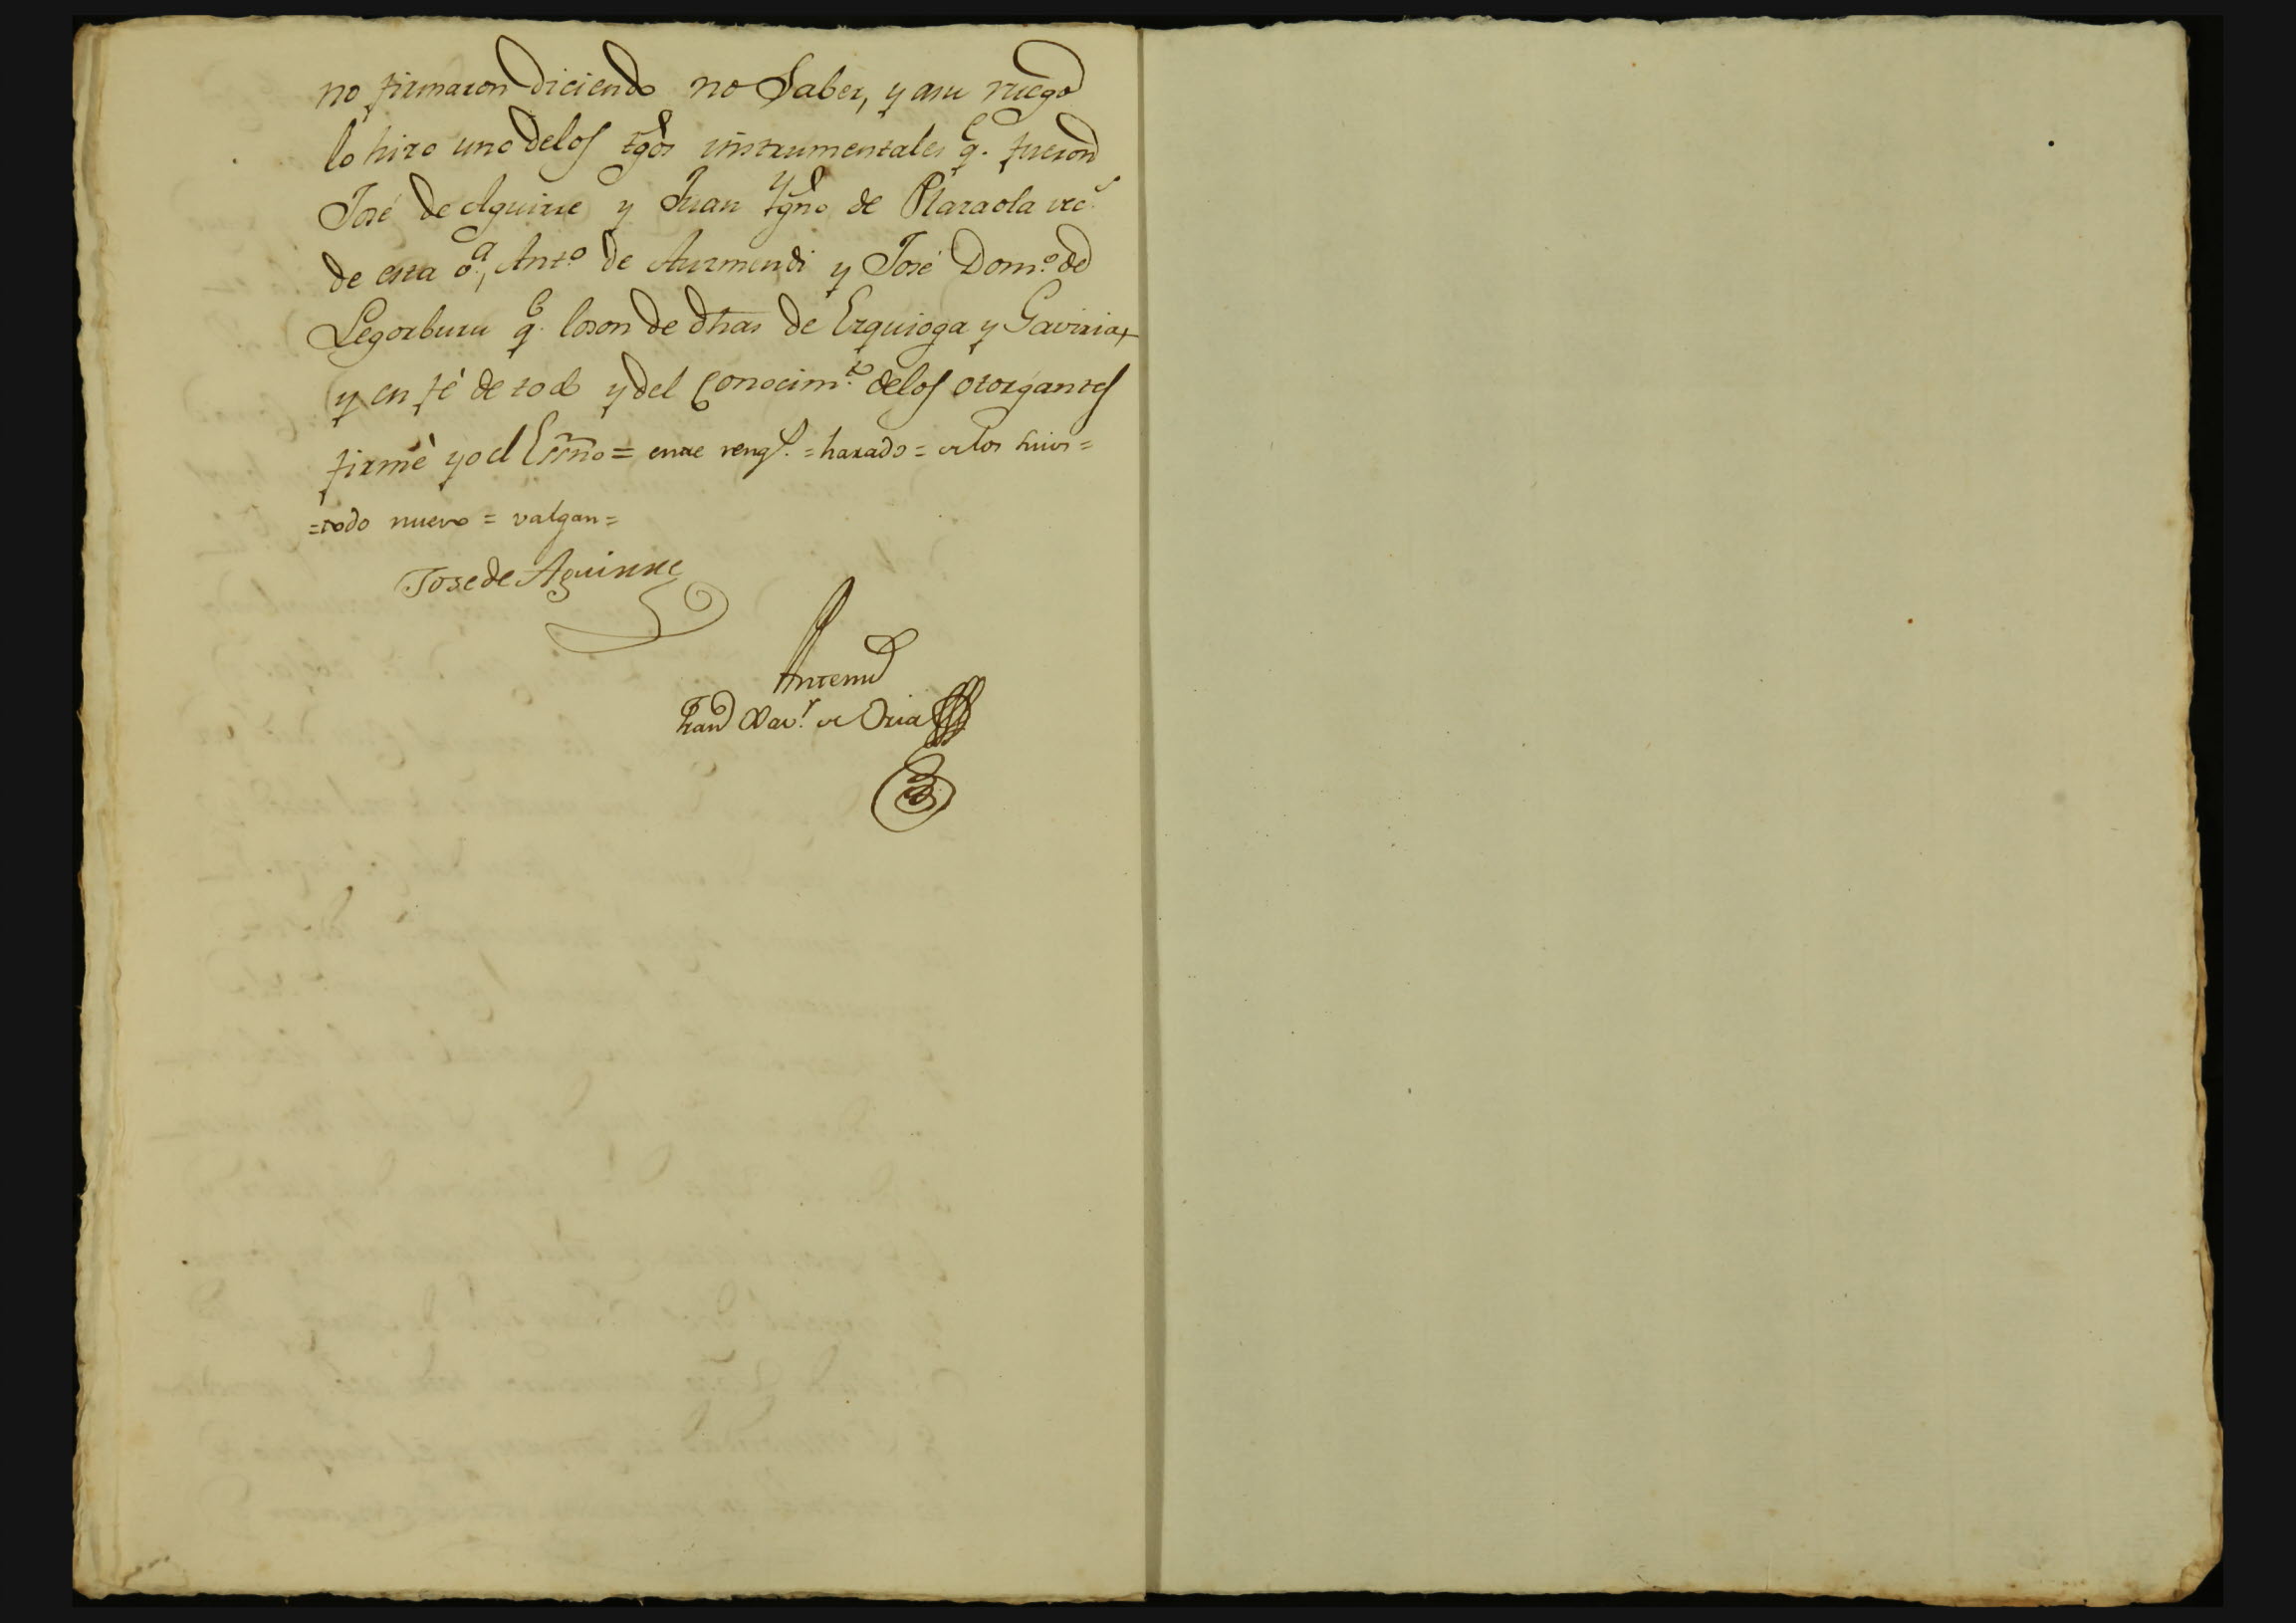 no firmaron diciendo no Saber, y asu ruego
lo hizo uno delos tgos instrumentales q. fueron
José de Aguirre y Juan Ygno de Plazaola vec.s
de esta v.a, Ant.o de Aurmendi y José Dom.o de
Legorburu q. loson de dhas de Ezquioga y Gaviria,
y en fé de todo y del Conocim.to delos otorgantes
firmè yo el Essno = entre rengs. = harado = de los hijos =
=todo nuevo = valgan=
Jose de Aguirre
Antemi
Fran Xav.r de Oria